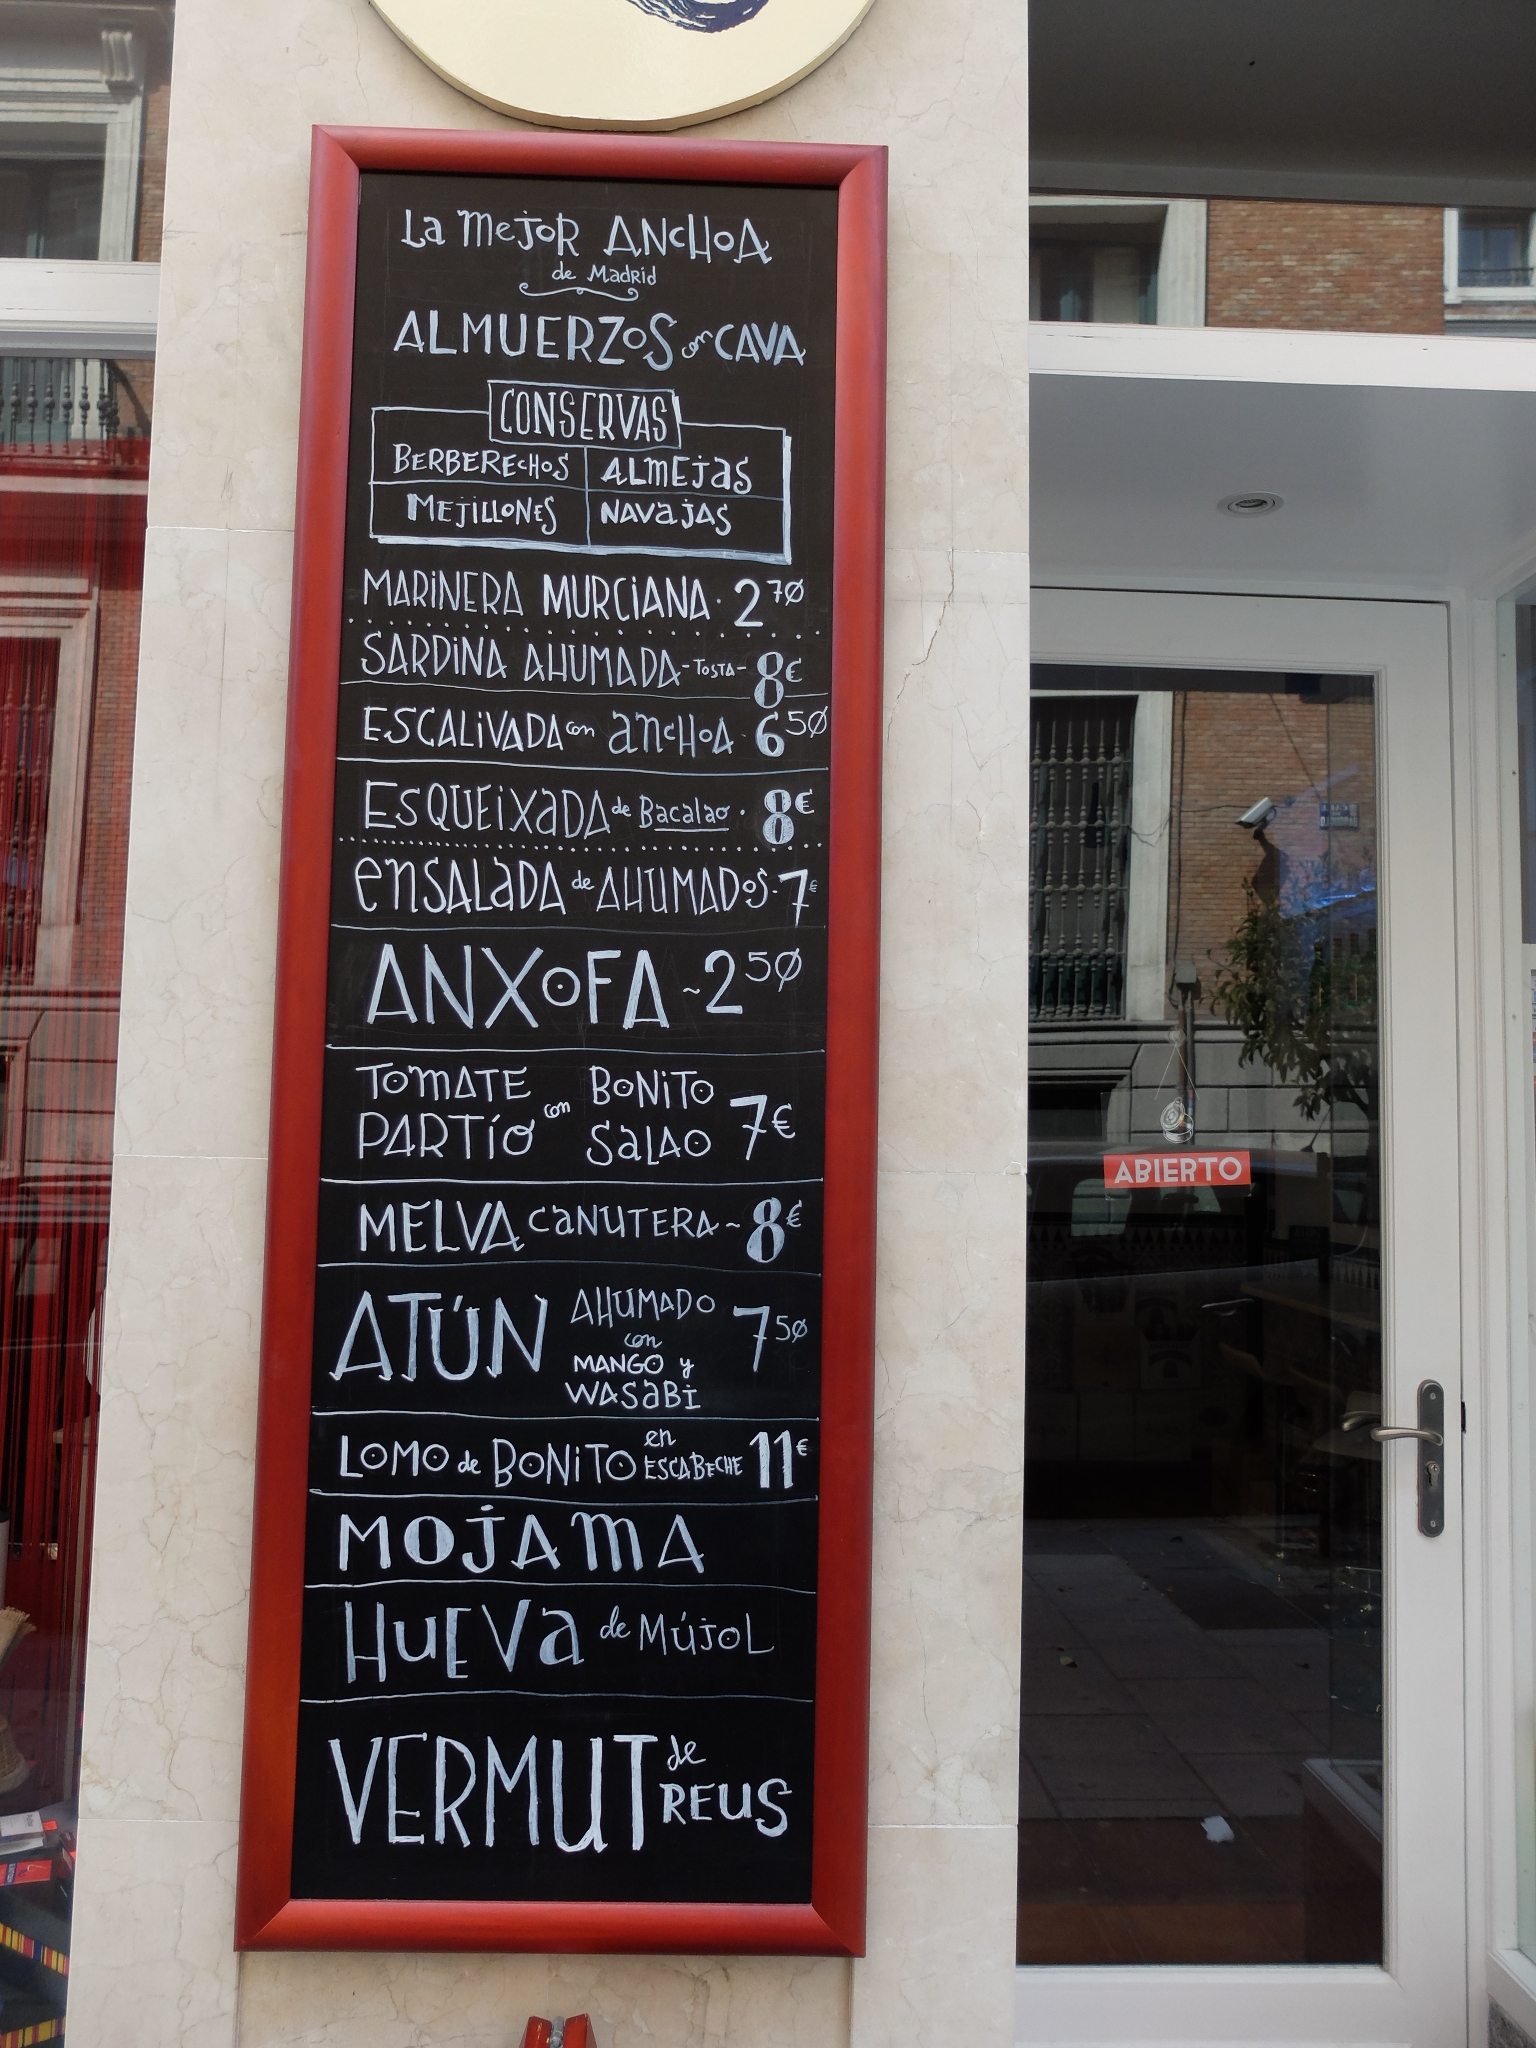 La mejor ANCHOA
de Madrid
ALMUERZOS con CAVA
CONSERVAS
BERBERECHOS ALMEJAS
MEJILLONES NAVAJAS
MARINERA MURCIANA · 2 70
SARDINA AHUMADA - TOSTA - 8€
ESCALIVADA con ANCHOA · 6 50
ESQUEIXADA de Bacalao · 8€
ENSALADA de AHUMADOS · 7€
ANXOFA ~ 2 50
TOMATE PARTÍO con BONITO SALAO 7€
MELVA CANUTERA ~ 8€
ATÚN AHUMADO 7 50
con
MANGO y
WASABI
LOMO de BONITO en ESCABECHE 11€
MOJAMA
HUEVA de MÚJOL
VERMUT de REUS
ABIERTO